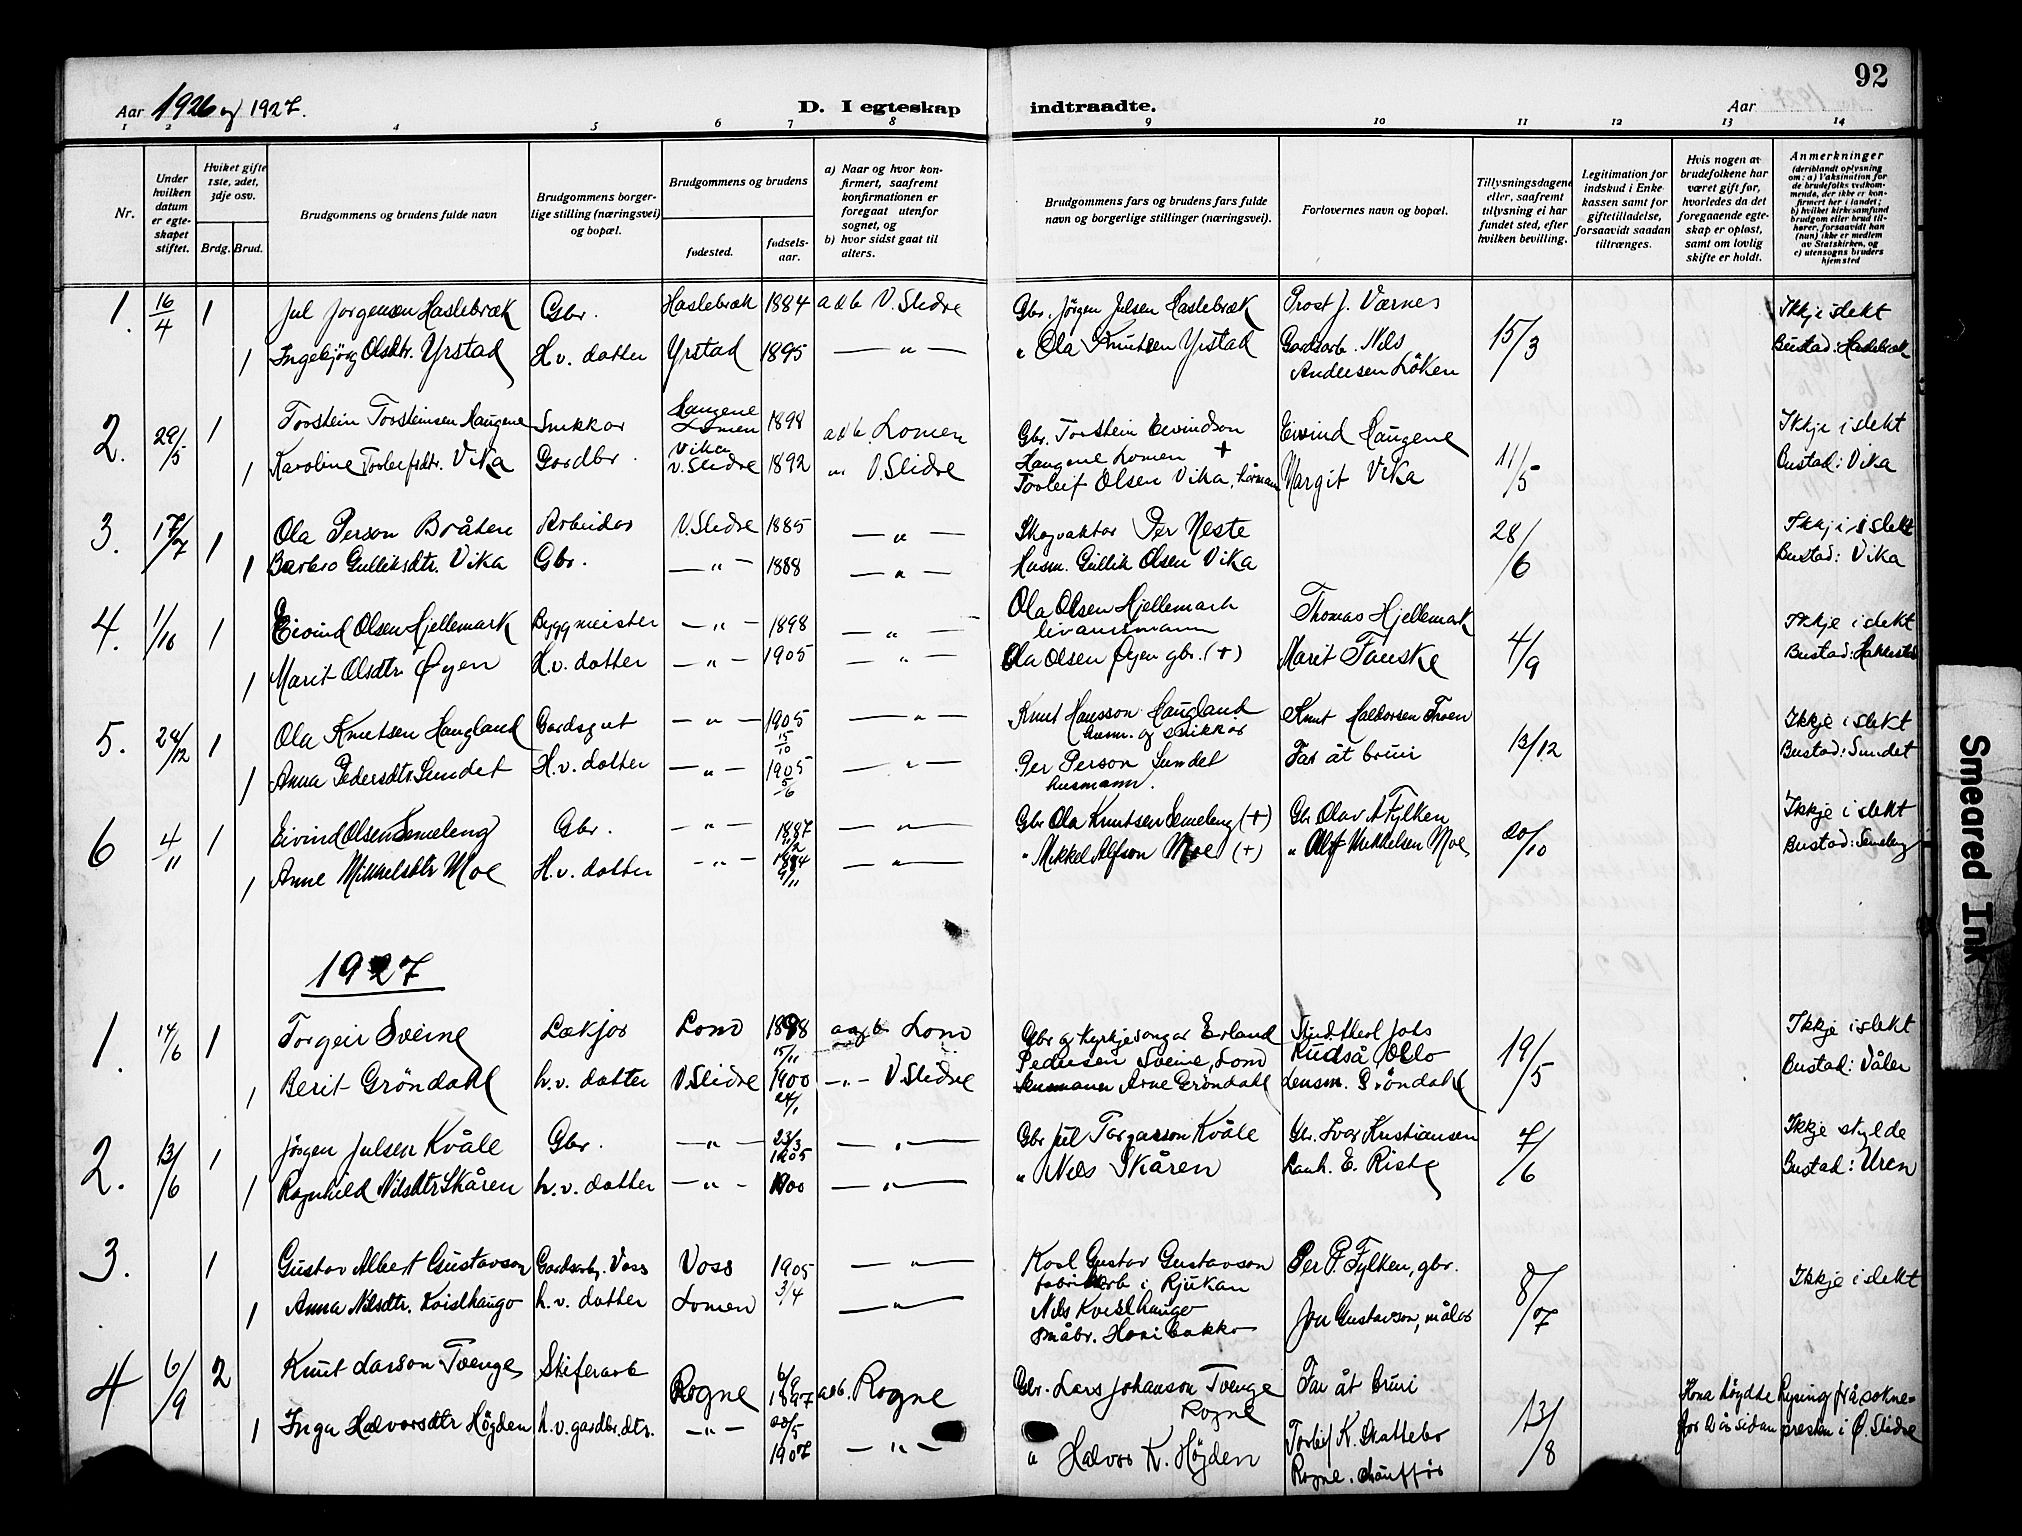 92
Aar 1926 og 1927.
D. I egteskap indtraadte.
Aar
1 2 4 5 6 7 8 9 10 11 12 13 14
Nr.
Under hvilken datum er egteskapet stiftet.
Hvilket gifte 1ste, 2det, 3dje osv.
Brdg. Brud.
Brudgommens og brudens fulde navn
Brudgommens borgerlige stilling (næringsvei) og bopæl.
Brudgommens og brudens
fødested.
fødselsaar.
a) Naar og hvor konfirmert, saafremt konfirmationen er foregaat utenfor sognet, og
b) hvor sidst gaat til alters.
Brudgommens fars og brudens fars fulde navn og borgerlige stillinger (næringsvei).
Forlovernes navn og bopæl.
Tillysningsdagene eller, saafremt tillysning ei har fundet sted, efter hvilken bevilling.
Legitimation for indskud i Enkekassen samt for giftetilladelse, forsaavidt saadan tiltrænges.
Hvis nogen av brudefolkene har været gift før, hvorledes da det foregaaende egteskap er opløst, samt om lovlig skifte er holdt.
Anmerkninger
(deriblandt oplysning om: a) Vaksination for de brudefolks vedkommende, der ikke er konfirmert her i landet; b) hvilket kirkesamfund brudgom eller brud tilhører, forsaavidt han (hun) ikke er medlem av Statskirken, og c) utensogns bruders hjemsted
1. 16/4 1 Jul Jørgensen Haslebræk Gbr. Haslebræk 1884 a & b V. Slidre Gbr. Jörgen Julsen Haslebræk Prost J. Værnes 15/3 Ikkje i slekt
1 Ingebjörg Olsdtr. Yrstad H.v. dotter Yrstad 1895 — " — " Ola Knutsen Yrstad Gardsarb. Nils Andersen Löken Bustad: Haslebræk
2. 29/5 1 Torstein Torsteinsen Haugene Snikkar Haugene Lomen 1898 a & b. Lomen Gbr. Torstein Eivindson Haugene Lomen + Eivind Haugene 11/5 Ikkje i slekt
1 Karoline Torleifsdtr. Vika Gardbr. Vika V. Slidre 1892 " V. Slidre Torleif Olsen Vika, Margit Vika Bustad: Vika
3. 17/7 1 Ola Person Bråten Arbeidar V. Slidre 1885 — " — Skogvaktar Per Neste 28/6 Ikkje i slekt
1 Barbro Gulliksdtr. Vika Gbr. — " — 1888 — " — Husm. Gullik Olsen Vika Bustad: Vika
4. 1/10 1 Eivind Olsen Hjellemark Byggmeister — " — 1898 — " — Ola Olsen Hjellemark livaursmann Thomas Hjellemark 4/9 Ikkje i slekt
1 Marit Olsdtr. Øyen H.v. dotter — " — 1905 — " — Ola Olsen Øyen gbr. (+) Marit Fauske Bustad:
5. 28/12 1 Ola Knutsen Haugland Gardsgut — " — 1905 15/10 — " — Knut Hansson Haugland husm. og snikkar Knut Haldorsen Troen 13/12 Ikkje i slekt
1 Anna Pedersdtr Sundet H.v. dotter — " — 1905 5/6 — " — Per Person Sundet husmann. Far åt bruri Bustad: Sundet
6 4/11 1 Eivind Olsen Semeleng Gbr. — " — 1887 — " — Gbr Ola Knutsen Semeleng (+) Gbr Olav A Fylken 20/10 Ikkje i slekt
1 Anne Mikkelsdtr Moe H.v. dotter — " — 1894 9/11 — " — " Mikkel Alfson Moe (+) " Alf Mikkelsen Moe Bustad: Semeleng
1927
1. 14/6 1 Torgeir Sveine Lækjar Lom 1898 15/11 a og b Lom Gbr og kyrkjesongar Erland Pedersen Sveine, Lom Stud. theol Jots Rudså Oslo 19/5 Ikkje i slekt
1 Berit Gröndahl h.v. dotter V. Slidre 1900 24/1 — " — V. Slidre Arne Gröndahl lensm. Gröndahl Bustad: Våler
2. 13/6 1 Jörgen Julsen Kvåle Gbr. — " — 23/3 1905 — " — Gbr Jul Torgarson Kvåle Gbr. Ivar Kristiansen 7/6 Ikkje skylde
1 Ragnhild Nilsdtr Skåren h.v. dotter — " — 1900 — " — " Nils Skåren Lauh. E. Riste Bustad: Uren
3. 1 Gustav Albert Gustavson Gardsarb. Voss Voss 1905 3/4 — " — Karl Gustav Gustavson fabrikkarb i Rjukan Per P. Fylken, gbr. 8/7 Ikkje i slekt
1 Anna Nilsdtr. Kvislhaugo h.v. dotter Lomen — " — Nils Kvislhaugo småbr. Hovi bakko Jon Gustavson, målar
4 6/9 2 Knut Larson Tvenge Skiferarb Rogne 6/9 1897 a & b. Rogne Gbr. Lars Johanson Tvenge Rogne Far åt bruri 13/8 Hona döydde for år sidan Lysing frå sokneprestен i Ø. Slidre
1 Inga Halvorsdtr Högden h.v. gardbr. dtr. — " — 20/5 1907 — " — " Halvor K. Högden Torleif K. Skattebo Rogne. chauffør
Smeared Ink